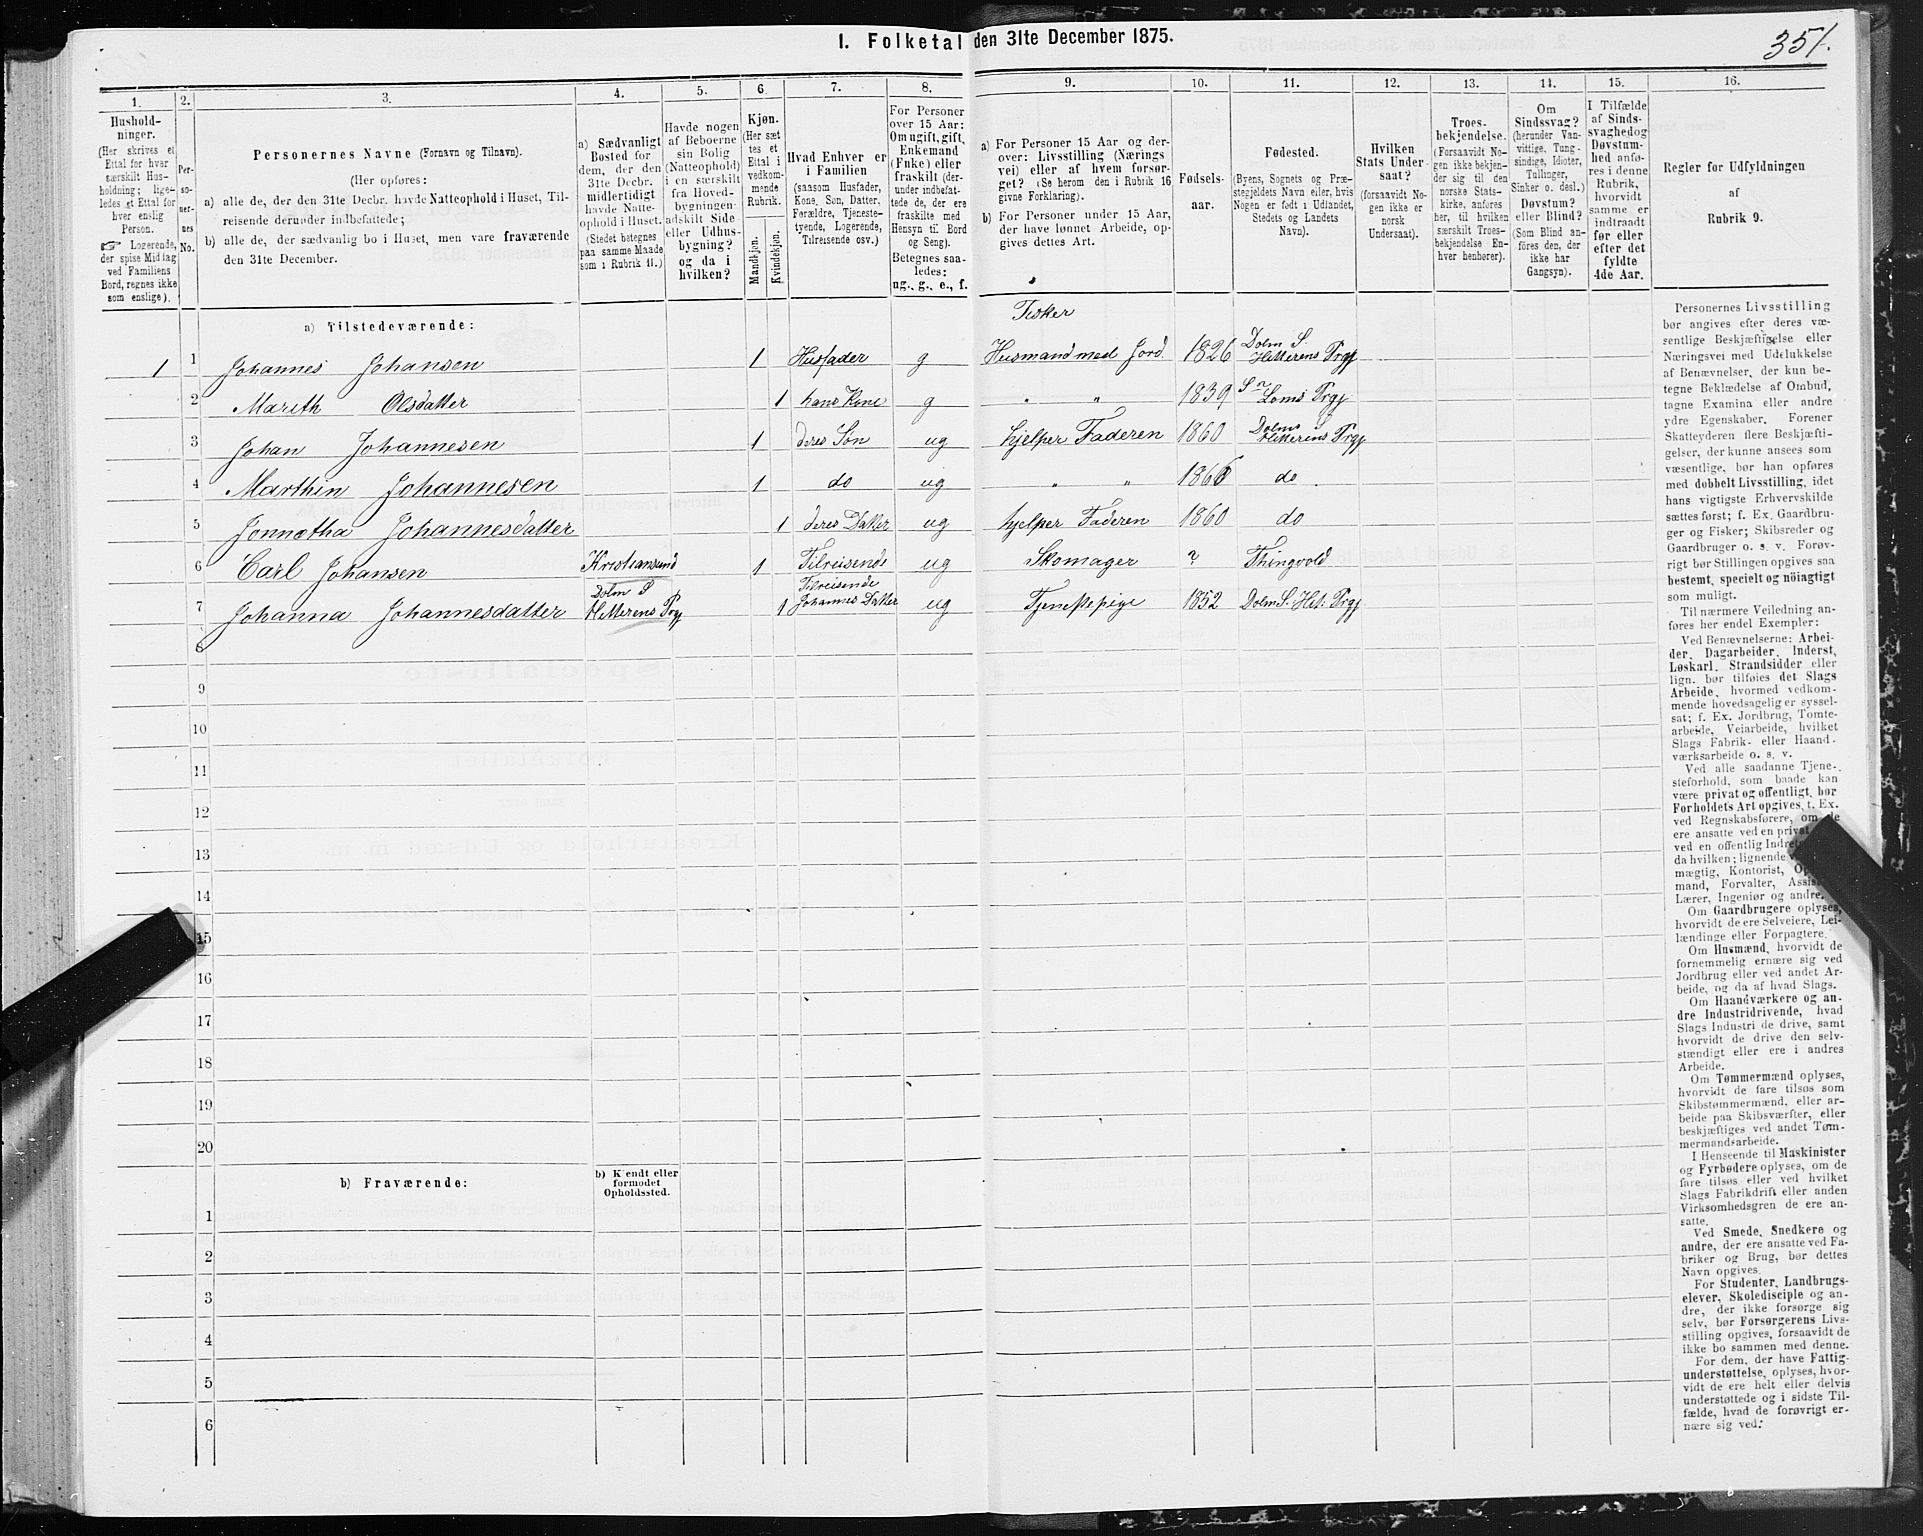 351.
1. Folketal den 31te December 1875.
1. 2. 3. 4. 5. 6. 7. 8. 9. 10. 11. 12. 13. 14. 15. 16.
Hushold-
ninger.
(Her skrives et
Ettal for hver
særskilt Hus-
holdning; lige-
ledes et Ettal for
hver enslig
Person.
☞ Logerende,
der spise Middag
ved Familiens
Bord, regnes ikke
som enslige).
Per-
so-
ner-
nes
No.
Personernes Navne (Fornavn og Tilnavn).
(Her opføres:
a) alle de, der den 31te Decbr. havde Natteophold i Huset, Til-
reisende derunder indbefattede;
b) alle de, der sædvanlig bo i Huset, men vare fraværende
den 31te December.
a) Sædvanligt
Bosted for
dem, der den
31te Decbr.
midlertidigt
havde Natte-
ophold i Huset.
(Stedet betegnes
paa samme Maade
som i Rubrik 11.)
Havde nogen
af Beboerne
sin Bolig
(Natteophold)
i en særskilt
fra Hoved-
bygningen
adskilt Side-
eller Udhus-
bygning?
og da i
hvilken?
Kjøn.
(Her sæt-
tes et
Ettal i
vedkom-
mende
Rubrik.
Mandkjøn.
Kvindekjøn.
Hvad Enhver er
i Familien
(saasom Husfader,
Kone, Søn, Datter,
Forældre, Tjeneste-
tyende, Logerende,
Tilreisende osv.)
For Personer
over 15 Aar:
Om ugift, gift,
Enkemand
(Enke) eller
fraskilt (der-
under indbefat-
tede de, der ere
fraskilte med
Hensyn til Bord
og Seng).
Betegnes saa-
ledes:
ug., g., e., f.
a) For Personer 15 Aar og der-
over: Livsstilling (Nærings
vei) eller af hvem forsør-
get? (Se herom den i Rubrik 16
givne Forklaring).
b) For Personer under 15 Aar,
der have lønnet Arbeide, op-
gives dettes Art.
Fødsels-
aar.
Fødested.
(Byens, Sognets og Præ-
stegjeldets Navn eller, hvis
Nogen er født i Udlandet,
Stedets og Landets
Navn).
Hvilken
Stats Under-
saat?
(forsaavidt No-
gen ikke er
norsk
Undersaat).
Troes-
bekjendelse.
(Forsaavidt No-
gen ikke bekjen-
der sig til den
norske Stats-
kirke, anføres
her, til hvilken
særskilt Troes-
bekjendelse En-
hver henhører).
Om
Sindssvag?
(herunder Van-
vittige, Tung-
sindige, Idioter,
Tullinger,
Sinker o. desl.)
Døvstum?
eller Blind?
(Som Blind an-
føres den, der
ikke har
Gangsyn).
I Tilfælde
af Sinds-
svaghed og
Døvstum-
hed anfø-
res i denne
Rubrik,
hvorvidt
samme er
indtraadt
før eller
efter det
fyldte
4de Aar.
Regler for Udfyldningen
af
Rubrik 9.
a) Tilstedeværende:
Fisker
1 1 Johannes Johansen 1 Husfader g Husmand med Jord. 1826 Dolm S. Hitterens Prgj
2 Marith Olsdatter 1 hans Kone g " " 1839 Loms Prgj
3 Johan Johannesen 1 deres Søn ug hjelper Faderen 1860 Dolms Hitterens Prgj
4 Marthin Johannesen 1 do ug " " 1866 do
5 Jonnetha Johannesdatter 1 deres Datter ug hjelper Faderen 1860 do
6 Carl Johansen Kristiansund 1 Tilreisende ug Skomager ? Thingvold
7 Johanna Johannesdatter Dolm S Hitterens Prgj 1 Tilreisende Johannes Datter ug Tjenestepige 1852 Dolm S. Hit: Prgj
8
9
10
11
12
13
14
15
16
17
18
19
20
b) Fraværende:
b) Kjendt eller
formodet
Opholdssted.
1
2
3
4
5
6
Personernes Livsstilling
bør angives efter deres væ-
sentlige Beskjæftigelse eller
Næringsvei med Udelukkelse
af Benævnelser, der kun be-
tegne Beklædelse af Ombud,
tagne Examina eller andre
ydre Egenskaber. Forener
Skatteyderen flere Beskjæfti-
gelser, der kunne ansees som
væsentlige, bør han opføres
med dobbelt Livsstilling, idet
hans vigtigste Erhvervskilde
sættes først; f. Ex. Gaardbru-
ger og Fisker; Skibsreder og
Gaardbruger o. s. v. Forøv-
rigt bør Stillingen opgives saa
bestemt, specielt og nøiagtigt
som muligt.
Til nærmere Veiledning an-
føres her endel Exempler:
Ved Benævnelserne: Arbei-
der, Dagarbeider, Inderst,
Løskarl, Strandsidder eller
lign. bør tilføies det Slags
Arbeide, hvormed vedkom-
mende hovedsagelig er syssel-
sat; f. Ex. Jordbrug, Tomte-
arbeide, Veiarbeide, hvilket
Slags Fabrik- eller Haand-
værksarbeide o. s. v.
Ved alle saadanne Tjene-
steforhold, som baade kan
være privat og offentligt, bør
Forholdets Art opgives, t. Ex.
ved Regnskabsførere, om de
ere ansatte ved en privat
ved en offentlig
da hvilken; lignende
mægtig, Kontorist,
mand, Forvalter,
Lærer, Ingeniør og andre.
Om Gaardbrugere oplyses,
hvorvidt de ere Selveiere, Lei-
lændinge eller Forpagtere.
Om Husmænd, hvorvidt de
fornemmelig ernære sig ved
Jordbrug eller ved andet Ar-
beide, og da af hvad Slags.
Om Haandværkere og an-
dre Industridrivende, hvad
Slags Industri de drive, samt
hvorvidt de drive den selv-
stændigt eller ere i andres
Arbeide.
Om Tømmermænd oplyses,
hvorvidt de fare tilsøs som
Skibstømmermænd, eller ar-
beide paa Skibsværfter, eller
beskjæftiges ved andet Tøm-
mermandsarbeide.
I Henseende til Maskinister
og Fyrbødere oplyses, om de
fare tilsøs eller ved hvilket
Slags Fabrikdrift eller anden
Virksomhedsgren de ere an-
satte.
Ved Smede, Snedkere og
andre, der ere ansatte ved Fa-
briker og Brug, bør dettes
Navn opgives.
For Studenter, Landbrugs-
elever, Skoledisciple og an-
dre, der ikke forsørge sig
selv, bør Forsørgerens Livs-
stilling opgives, forsaavidt de
ikke bo sammen med denne.
For dem, der have Fattig-
understøttelse, oplyses, hvor-
vidt de ere helt eller delvis
understøttede og i sidste Til-
fælde, hvad de forøvrigt er-
nære sig ved.